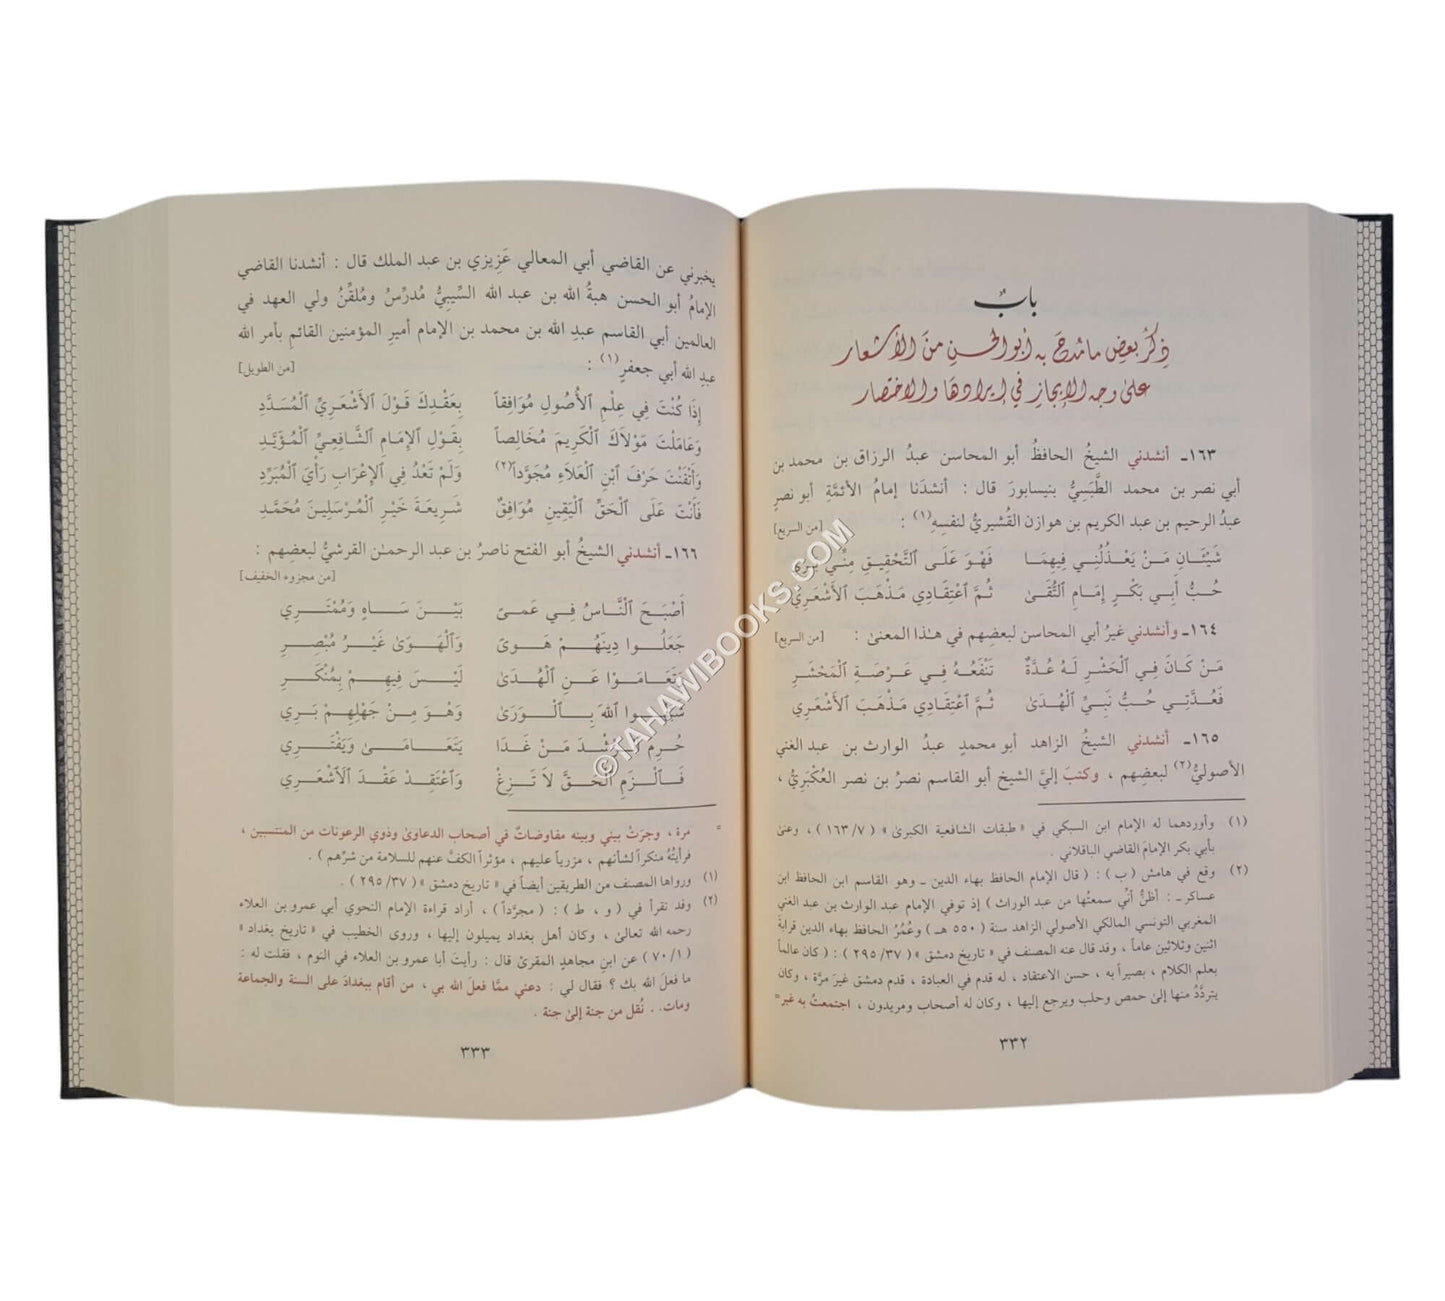 بابٌ
ذِكرُ بعضِ ما مُدحَ به أبو الحسنِ منَ الأشعار
على وجه الإيجازِ في إيرادها والاختصار
١٦٣ـ أنشدني الشيخُ الحافظُ أبو المحاسن عبدُ الرزاق بن محمد بن
أبي نصر بن محمد الطَّبَسِيُّ بنيسابورَ قال : أنشدَنا إمامُ الأئمَّةِ أبو نصرٍ
عبدُ الرحيم بن عبد الكريم بن هوازن القُشيريُّ لنفسِهِ(١) : [من السريع]
شَيْئَانِ مَنْ يَعْذُلُنِي فِيهِمَا فَهْوَ عَلَى ٱلتَّحْقِيقِ مِنِّي بَرِي
حُبُّ أَبِي بَكْرٍ إِمَامِ ٱلتُّقَىٰ ثُمَّ ٱعْتِقَادِي مَذْهَبَ ٱلأَشْعَرِيْ
١٦٤ـ وأنشدني غيرُ أبي المحاسن لبعضِهم في هـٰذا المعنىٰ : [من السريع]
مَنْ كَانَ فِي ٱلْحَشْرِ لَهُ عُدَّةٌ تَنْفَعُهُ فِي عَرْصَةِ ٱلْمَحْشَرِ
فَعُدَّتِي حُبُّ نَبِيِّ ٱلْهُدَىٰ ثُمَّ ٱعْتِقَادِي مَذْهَبَ ٱلأَشْعَرِي
١٦٥ـ أنشدني الشيخُ الزاهد أبو محمدٍ عبدُ الوارث بن عبد الغني
الأصوليُّ(٢) لبعضِهم ، وكتبَ إليَّ الشيخ أبو القاسم نصرُ بن نصر العُكْبَرِيُّ ،
(١) وأوردهما له الإمام ابن السبكي في « طبقات الشافعية الكبرىٰ » ( ٧/ ١٦٣ ) ، وعنىٰ
بأبي بكر الإمامَ القاضي الباقلاني .
(٢) وقع في هامش ( ب ) : ( قال الإمام الحافظ بهاء الدين ـ وهو القاسم ابن الحافظ ابن
عساكر ـ : أظنُّ أنِّي سمعتُها من عبد الوراث ) إذ توفي الإمام عبد الوارث بن عبد الغني
المغربي التونسي المالكي الأصولي الزاهد سنة ( ٥٥٠ هـ ) وعُمُرُ الحافظ بهاء الدين قرابةَ
اثنين وثلاثين عاماً ، وقد قال عنه المصنف في « تاريخ دمشق » ( ٣٧/ ٢٩٥ ) : ( كان عالماً
بعلم الكلام ، بصيراً به ، حسن الاعتقاد ، له قدم في العبادة ، قدم دمشق غيرَ مرَّة ، وكان
يتردَّدُ منها إلىٰ حمص وحلب ويرجع إليها ، وكان له أصحاب ومريدون ، اجتمعتُ به غير =
٣٣٢
يخبرني عن القاضي أبي المعالي عَزِيزي بن عبد الملك قال : أنشدنا القاضي
الإمامُ أبو الحسن هبةُ الله بن عبد الله السِّيبِيُّ مُدرِّسُ ومُلقِّنُ ولي العهد في
العالمين أبي القاسم عبدِ الله بن محمد بن الإمام أميرِ المؤمنين القائمِ بأمر الله
عبدِ الله أبي جعفرٍ(١) : [من الطويل]
إِذَا كُنْتَ فِي عِلْمِ ٱلأُصُولِ مُوَافِقاً بِعَقْدِكَ قَوْلَ ٱلأَشْعَرِيِّ ٱلْمُسَدَّدِ
وَعَامَلْتَ مَوْلاَكَ ٱلْكَرِيمَ مُخَالِصاً بِقَوْلِ ٱلإِمَامِ ٱلشَّافِعِيِّ ٱلْمُؤَيَّدِ
وَأَتْقَنْتَ حَرْفَ ٱبْنِ ٱلْعَلاَءِ مُجَوَّداً(٢) وَلَمْ تَعْدُ فِي ٱلإِعْرَابِ رَأْيَ ٱلْمُبَرِّدِ
فَأَنْتَ عَلَى ٱلْحَقِّ ٱلْيَقِينِ مُوَافِقٌ شَرِيعَةَ خَيْرِ ٱلْمُرْسَلِينَ مُحَمَّدِ
١٦٦ـ أنشدني الشيخُ أبو الفتح ناصرُ بن عبد الرحمـٰن القرشيُّ لبعضِهم :
[من مجزوء الخفيف]
أَصْبَحَ ٱلنَّاسُ فِي عَمىً بَيْنَ سَاهٍ وَمُمْتَرِي
جَعَلُوا دِينَهُمْ هَوىً وَٱلْهَوَىٰ غَيْرُ مُبْصِرِ
وَتَعَامَوْا عَنِ ٱلْهُدَىٰ لَيْسَ فِيهِمْ بِمُنْكَرِ
شَبَّهُوا ٱللهَ بِٱلْوَرَىٰ وَهْوَ مِنْ جَهْلِهِمْ بَرِي
حُرِمَ ٱلرُّشْدَ مَنْ غَدَا يَتَعَامَىٰ وَيَفْتَرِي
فَٱلْزَمِ ٱلْحَقَّ لاَ تَزِغْ وَٱعْتَقِدْ عَقْدَ ٱلأَشْعَرِي
= مرة ، وجرَتْ بيني وبينه مفاوضاتٌ في أصحاب الدعاوىٰ وذوي الرعونات من المنتسبين ،
فرأيتُهُ منكراً لشأنهم ، مزرياً عليهم ، مؤثراً الكفَّ عنهم للسلامة من شرِّهم ) .
(١) ورواها المصنف من الطريقين أيضاً في « تاريخ دمشق » ( ٣٧/ ٢٩٥ ) .
(٢) وقد تقرأ في ( و ، ط ) : ( مجرَّداً ) ، أراد قراءة الإمام النحوي أبي عمرو بن العلاء
رحمه الله تعالىٰ ، وكان أهل بغداد يميلون إليها ، وروى الخطيب في « تاريخ بغداد »
( ١/ ٧٠ ) عن ابنِ مجاهدٍ المقرئ قال : رأيتُ أبا عمرو بن العلاء في النوم ، فقلت له :
ما فعلَ الله بك ؟ فقال لي : دعني ممَّا فعلَ الله بي ، من أقام ببغدادَ على السنة والجماعة
ومات. . نُقل من جنة إلىٰ جنة .
٣٣٣
©TAHAWIBOOKS.COM